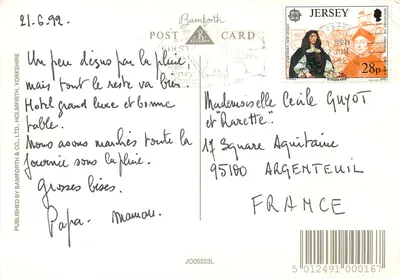 21.6.92.
Bamforth
POST CARD
JERSEY
28p
Un peu disguo par la pluie,
mais tout le reste va bien.
Hotel grand luxe et bonne
table.
Nous avons marchés toute la
journée sous la pluie.
Grosses bises.
Papa. maman.
Mademoiselle Cécile GUYOT
et "Rarette"
17 Square Aquitaine
95100 ARGENTEUIL
FRANCE
PUBLISHED BY BAMFORTH & CO., LTD., HOLMFIRTH, YORKSHIRE
JO05523L
5 012491 000167